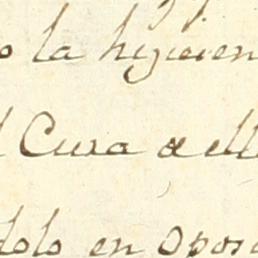 o la higien
l Cura a ell
dolo en opos